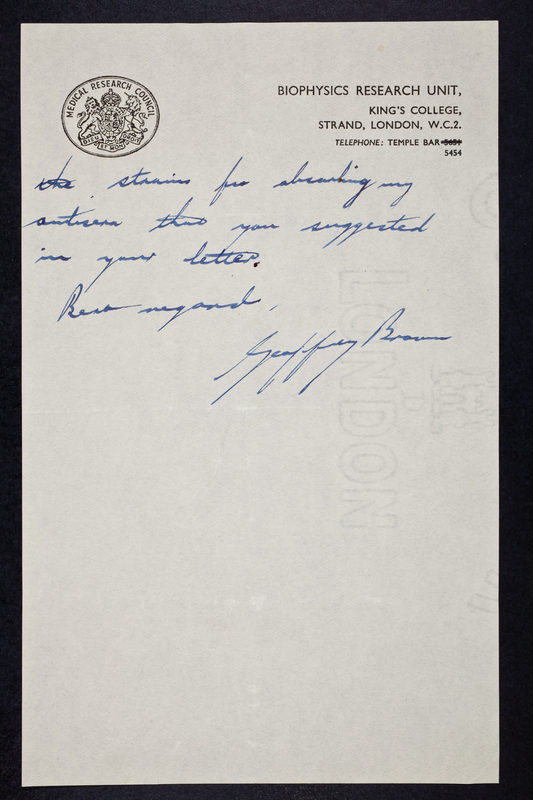 MEDICAL RESEARCH COUNCIL
DIEU ET MON DROIT
BIOPHYSICS RESEARCH UNIT,
KING'S COLLEGE,
STRAND, LONDON, W.C.2.
TELEPHONE: TEMPLE BAR 5651
5454
the strains for absorbing my
antisera that you suggested
in your letter.
Best regards,
Geoffrey Brown
LONDON